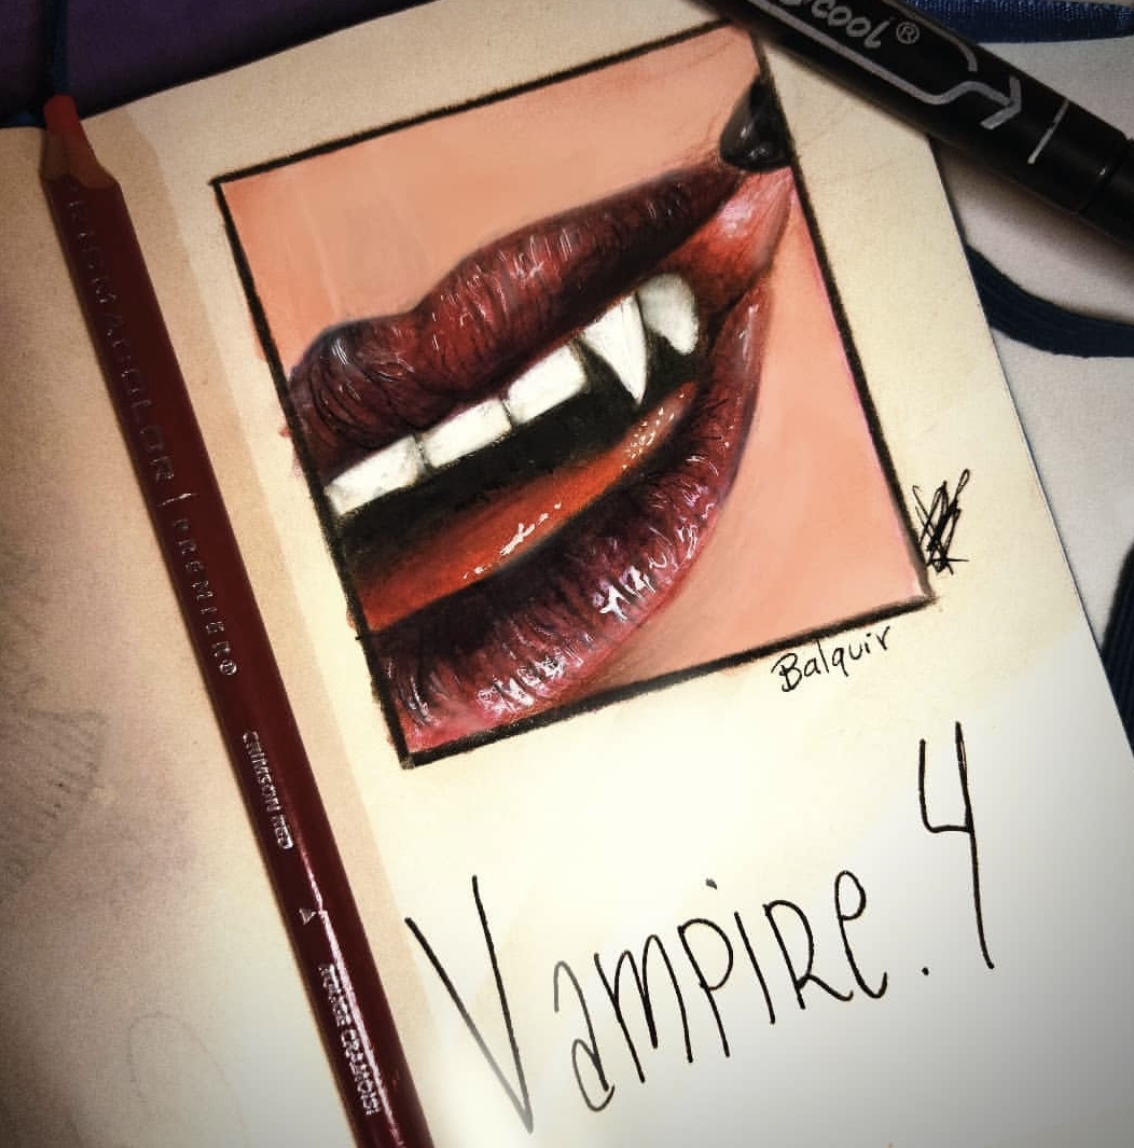 cool®
PRISMACOLOR | PREMIER®
CRIMSON RED
ROUGE CRAMOISI
Balquir
Vampire. 4